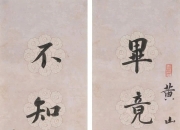 畢竟
黄山
不知